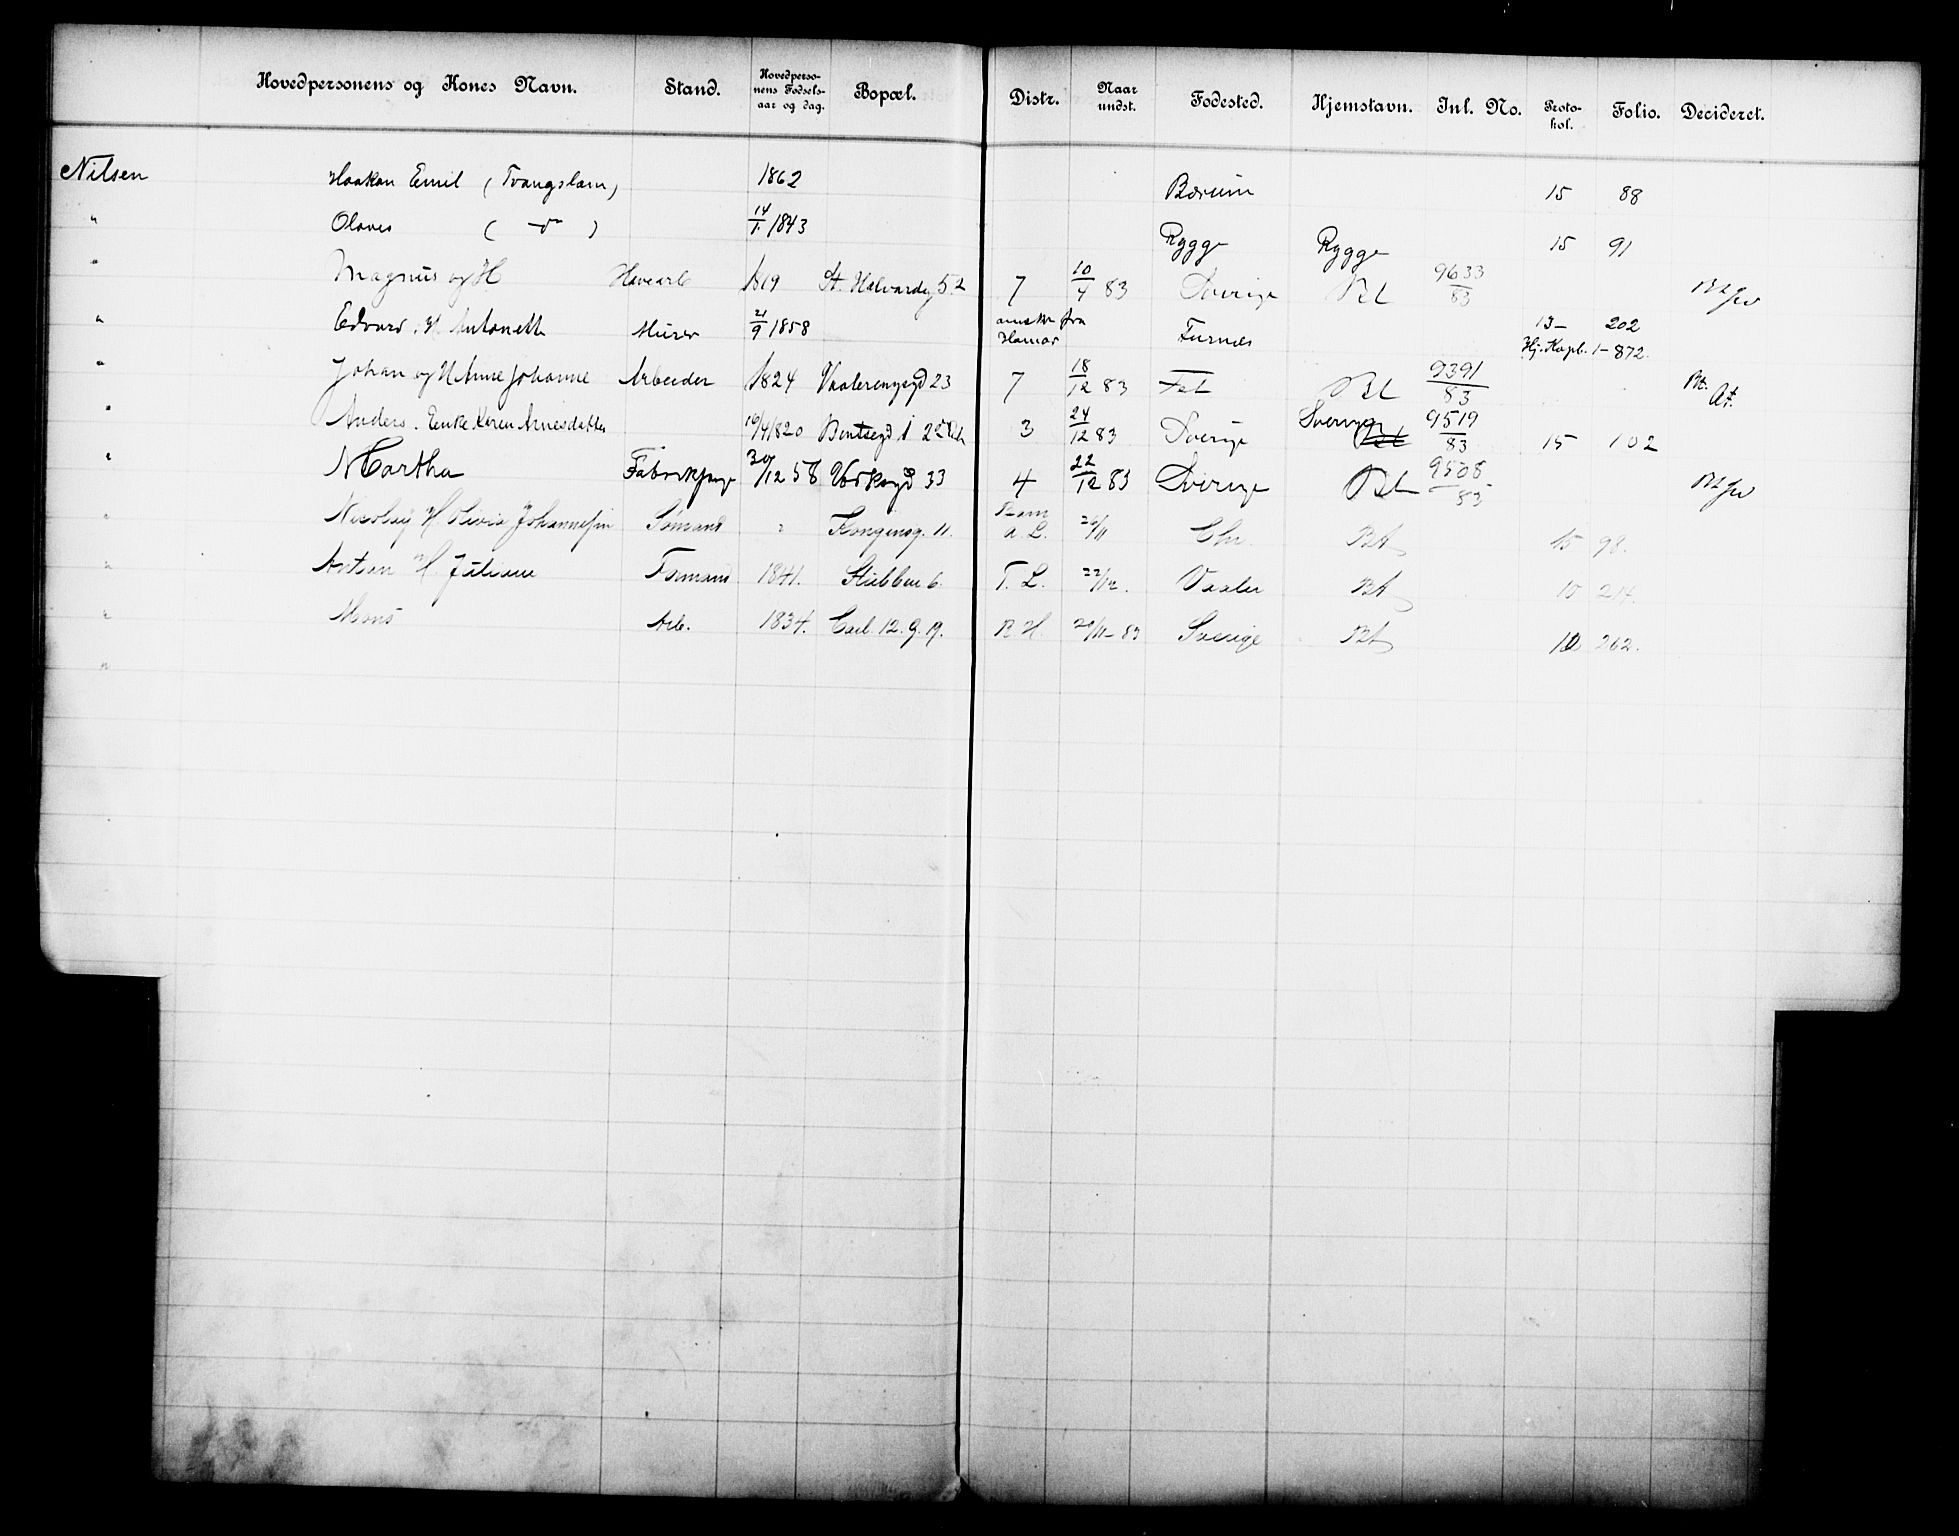 Hovedpersonens og Kones Navn. Stand. Hovedperso-nens Fødsels-aar og dag. Bopæl. Distr. Naar undst. Fødested. Hjemstavn. Inl. No. Proto-kol. Folio. Decideret.
Nilsen Haakon Emil (Tvangslem) 1862 Bærum 15 88
" Olaves ( " ) 14/1 1843 Rygge Rygge 15 91
" Magnus og H Havearb 1819 St. Halvardsg 52 7 10/4 83 Sverige Bt 9633/83
" Edvard. H Antonette Murer 21/9 1858 ansk fra Hamar Furnæs 13- 202 Hj. Kopb. 1-872.
" Johan og H Anne Johanne Arbeider 1824 Vaalerenggd 23 7 18/12 83 Fet Bt 9391/83 Bt. At.
" Anders. Enke Karen Arnesdatter 19/4 1820 Bentsegd 3 24/12 83 Sverige Sverige 9519/83 15 102
" Martha Fabrikpige 30/12 58 33 4 22/12 83 Sverige Bt 9508/83
" Nicolay H Olivia Johannesen Sømand " Kongensg. 11. a. L. 26/11 Chr. Bt 15 98.
" Antson H. Juliane Formand 1841. Stubben 6. T. L. 22/12. Vaaler Bt 10 214.
" Mons Arb. 1834. Carl. 12. g. 19. B H. 29/11-83 Sverige Bt 10 262.
"